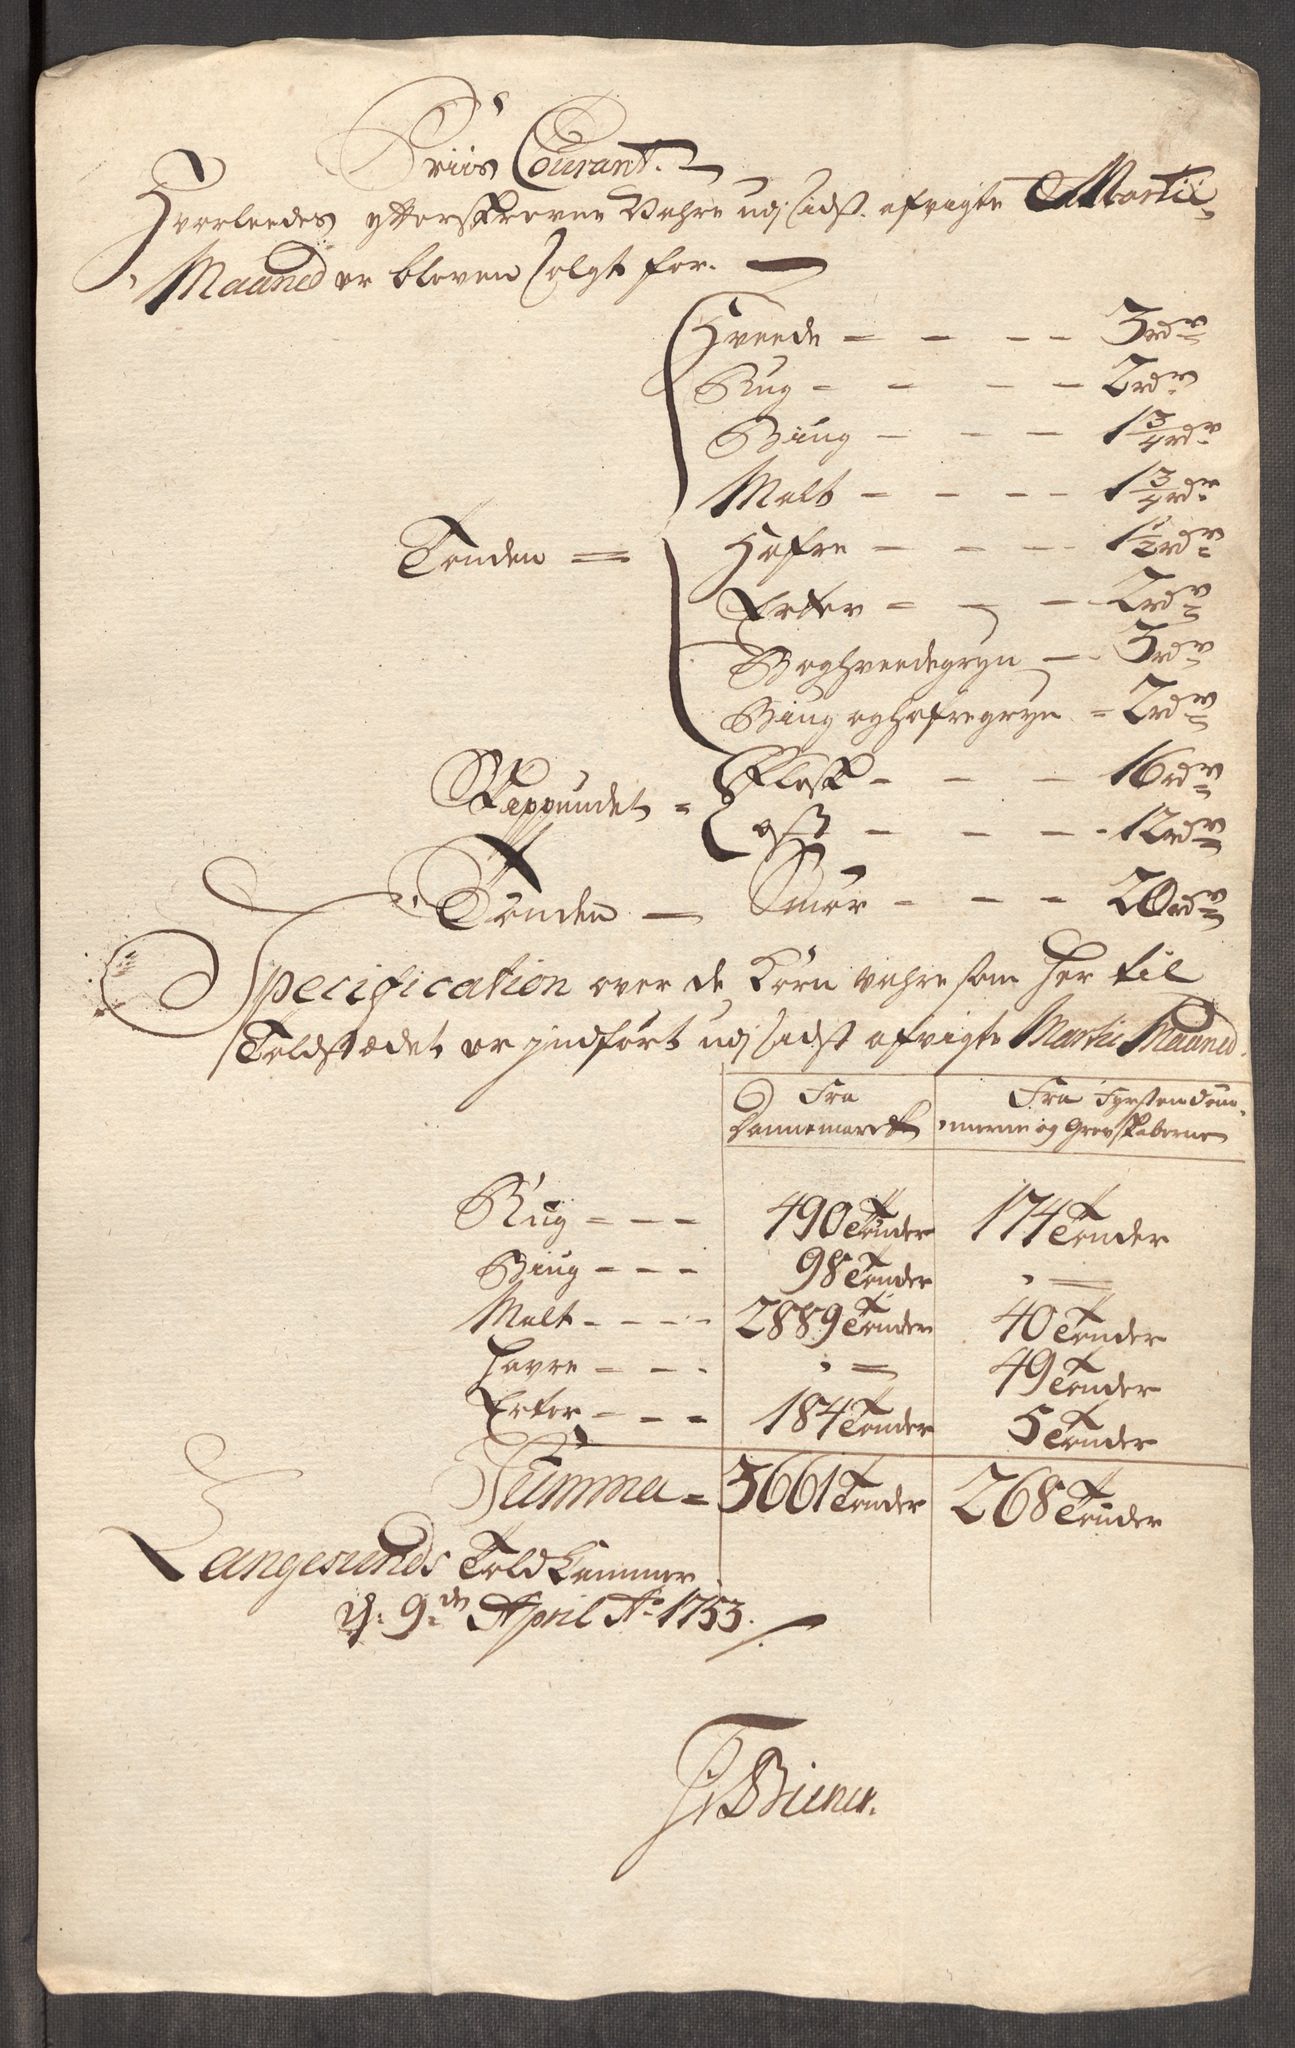 Priis Courant.
Hvorleedes efterskrevne Vahre udj sidst. afvigte Martii
Maaned er bleven solgt for.
Hveede - - - - 3 rdr
Rug - - - - 2 rdr
Biug - - - 1 3/4 rdr
Malt - - - - 1 3/4 rdr
Tønden = Hafre - - - - 1 1/2 rdr
Erter - - - 2 rdr
Boghveedegryn - - 3 rdr
Biug og Hafregryn - 2 rdr
Skippundet = Flesk - - - 16 rdr
Ost - - - - 12 rdr
Tønden - Smør - - - 20 rdr
Specification over de Korn vahre som her til
Toldstædet er jndført udj sidst afvigte Martii Maaned.
Fra Dannemarck Fra Fyrstendöm-
merne og Grevskaberne
Rug - - - 490 Tønder 174 Tønder
Biug - - - 98 Tønder "
Malt - - - - 2889 Tønder 40 Tønder
Havre - - - " 49 Tønder
Erter - - - 184 Tønder 5 Tønder
Summa = 3661 Tønder 268 Tønder
Langesunds Told Kammer
d: 9de April Ao 1753.